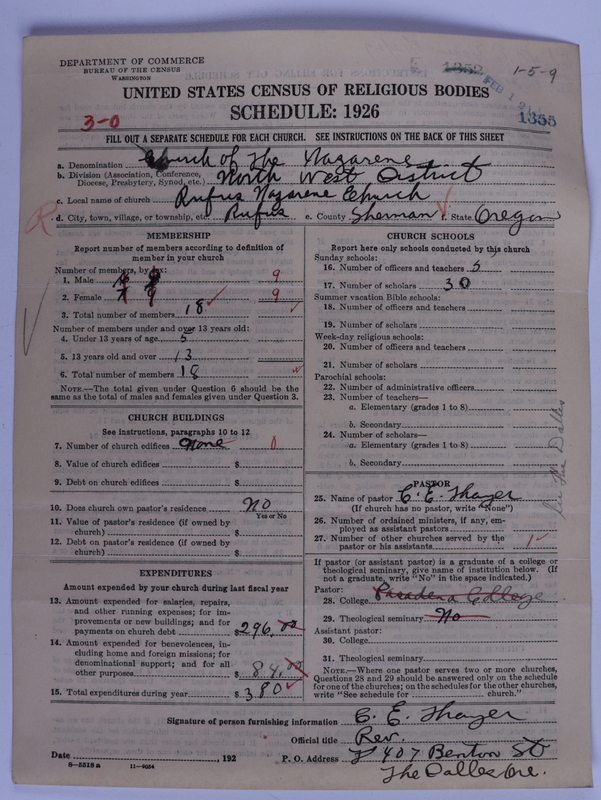 DEPARTMENT OF COMMERCE
BUREAU OF THE CENSUS
WASHINGTON
1352
FEB 1
1-5-9
1355
UNITED STATES CENSUS OF RELIGIOUS BODIES
SCHEDULE: 1926
3-0
FILL OUT A SEPARATE SCHEDULE FOR EACH CHURCH. SEE INSTRUCTIONS ON THE BACK OF THIS SHEET
a. Denomination Church of The Nazarene
b. Division (Association, Conference, Diocese, Presbytery, Synod, etc.) North West District
c. Local name of church Rufus Nazarene Church
R d. City, town, village, or township, etc. Rufus e. County Sherman f. State Oregon
MEMBERSHIP
Report number of members according to definition of
member in your church
Number of members, by sex:
1. Male 9 9
2. Female 9 9
3. Total number of members 18
Number of members under and over 13 years old:
4. Under 13 years of age 5
5. 13 years old and over 13
6. Total number of members 18
NOTE.—The total given under Question 6 should be the
same as the total of males and females given under Question 3.
CHURCH BUILDINGS
See instructions, paragraphs 10 to 12
7. Number of church edifices None 0
8. Value of church edifices $
9. Debt on church edifices $
10. Does church own pastor's residence No
Yes or No
11. Value of pastor's residence (if owned by
church) $
12. Debt on pastor's residence (if owned by
church) $
EXPENDITURES
Amount expended by your church during last fiscal year
13. Amount expended for salaries, repairs,
and other running expenses; for im-
provements or new buildings; and for
payments on church debt $296.00
14. Amount expended for benevolences, in-
cluding home and foreign missions; for
denominational support; and for all
other purposes $ 84.00
15. Total expenditures during year $380
CHURCH SCHOOLS
Report here only schools conducted by this church
Sunday schools:
16. Number of officers and teachers 5
17. Number of scholars 30
Summer vacation Bible schools:
18. Number of officers and teachers
19. Number of scholars
Week-day religious schools:
20. Number of officers and teachers
21. Number of scholars
Parochial schools:
22. Number of administrative officers
23. Number of teachers—
a. Elementary (grades 1 to 8)
b. Secondary
24. Number of scholars—
a. Elementary (grades 1 to 8)
b. Secondary
The Dalles
PASTOR
25. Name of pastor C. E. Thayer
(If church has no pastor, write "None")
26. Number of ordained ministers, if any, em-
ployed as assistant pastors
27. Number of other churches served by the
pastor or his assistants 1
If pastor (or assistant pastor) is a graduate of a college or
theological seminary, give name of institution below. (If
not a graduate, write "No" in the space indicated.)
Pastor:
28. College Pasadena College
29. Theological seminary No
Assistant pastor:
30. College
31. Theological seminary
NOTE.—Where one pastor serves two or more churches,
Questions 28 and 29 should be answered only on the schedule
for one of the churches; on the schedules for the other churches,
write "See schedule for church."
Signature of person furnishing information C. E. Thayer
Official title Rev.
Date , 192 P. O. Address 407 Benton St
8-5518 a 11-9034
The Dalles Ore.